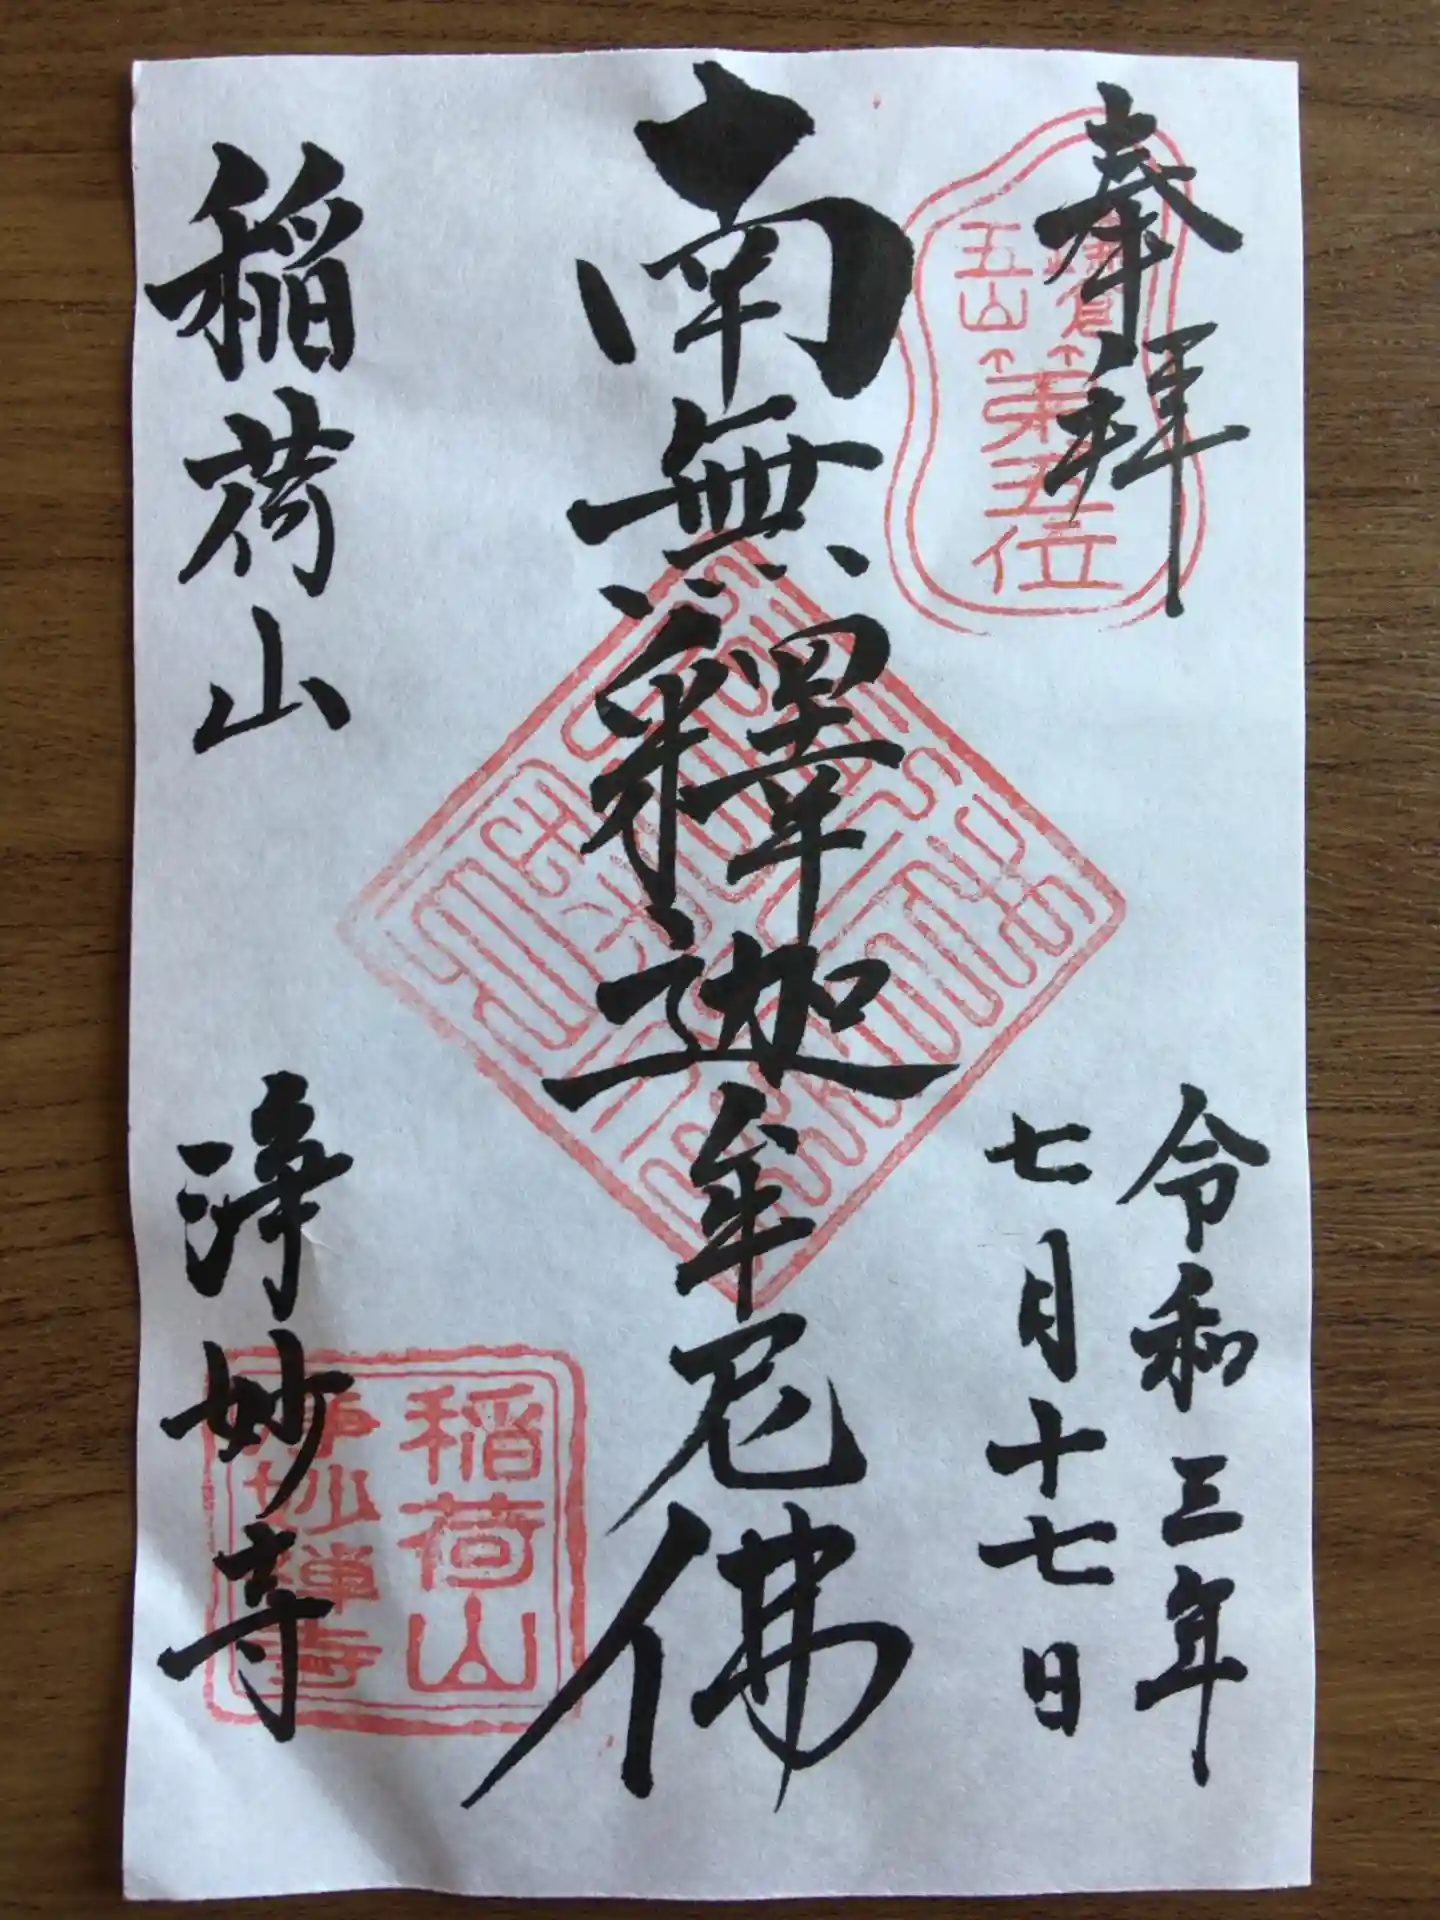 奉拝
鎌倉
五山
第五位
令和三年
七月十七日
南無釋迦牟尼佛
稲荷山
浄妙寺
稲荷山
浄妙禅寺